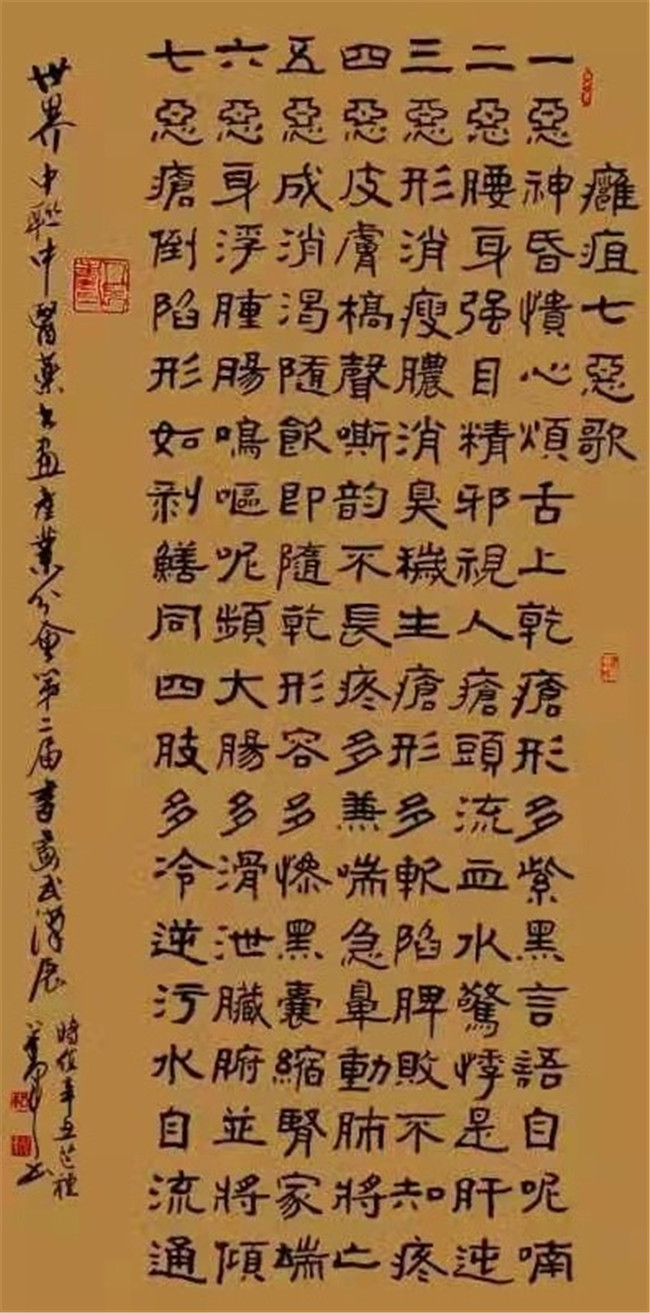 癰疽七惡歌
一惡神昏憒心煩舌上乾瘡形多紫黑言語自呢喃
二惡腰身强目精邪視人瘡頭流血水驚悸是肝迍
三惡形消瘦膿消臭穢生瘡形多軟陷脾敗不知疼
四惡皮膚槁聲嘶韵不長疼多兼喘急暈動肺將亡
五惡成消渴随飲即隨乾形容多慘黑囊縮腎家端
六惡身浮腫腸鳴嘔呢頻大腸多滑泄臟腑並將傾
七惡瘡倒陷形如剥鱔同四肢多冷逆污水自流通
世界中聯中醫藥书畫產業分會第二届書畫武漢展
時值辛丑芒種
书